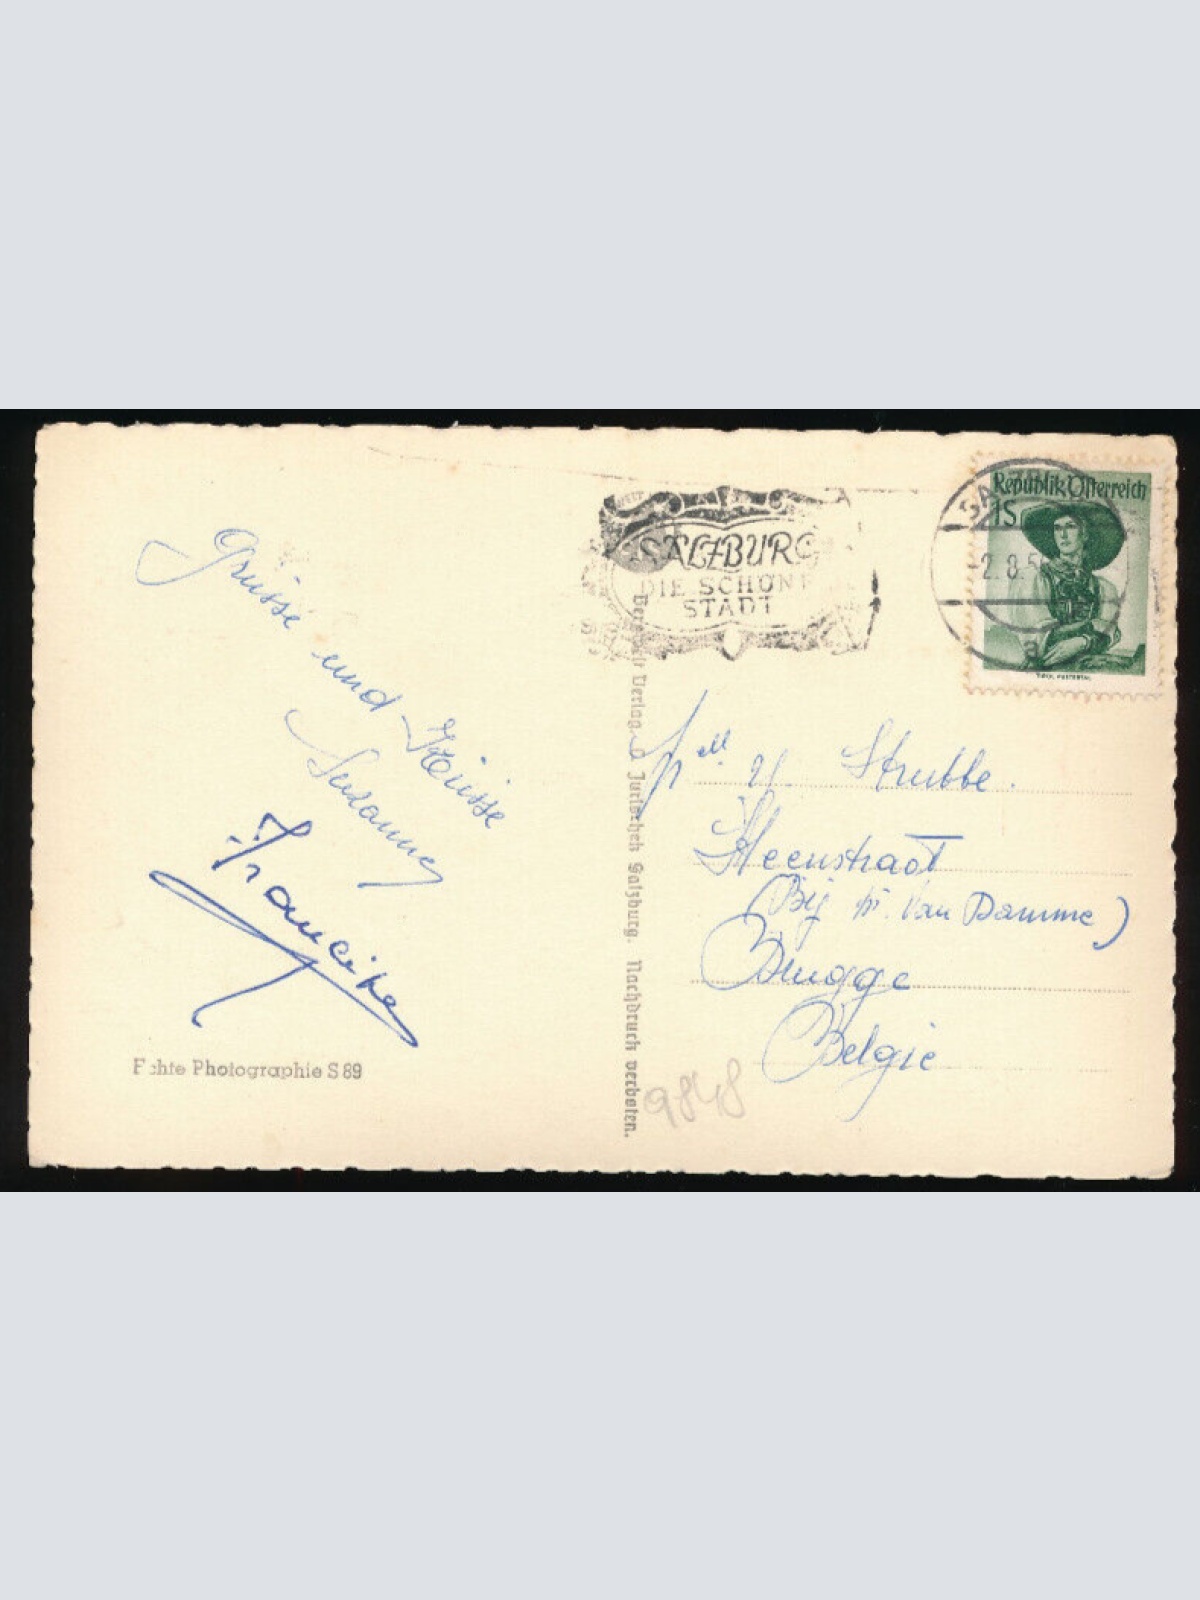 Grüsse und Küsse
Suzanne
Francine
Echte Photographie S 89
Verlag C. Jurischek Salzburg. Nachdruck verboten.
SALZBURG
DIE SCHÖNE
STADT
Republik Österreich
1S
2.8.5
a
Mell Y Strubbe.
Steenstraat
(Bij Mr. Van Damme)
Brugge
Belgie
9848